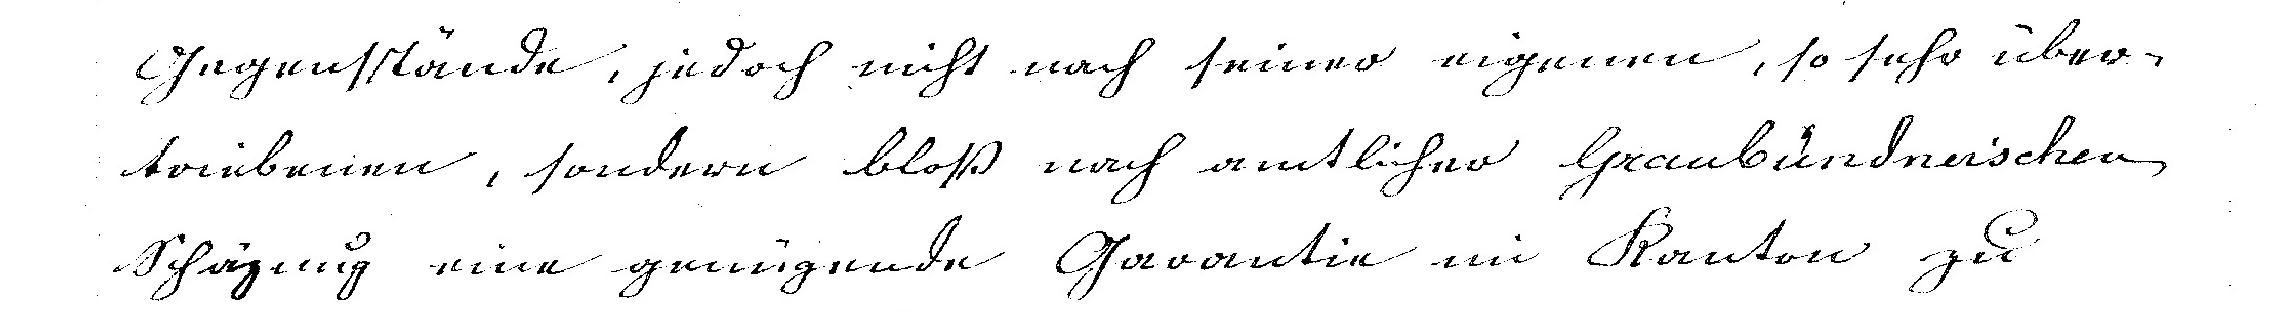 Gegenstände, jedoch nicht nach seiner eigenen, so sehr über-
triebenen, sondern bloß nach amtlicher Graubündneischen
Schäzung eine genügende Garantie im Kanton zu